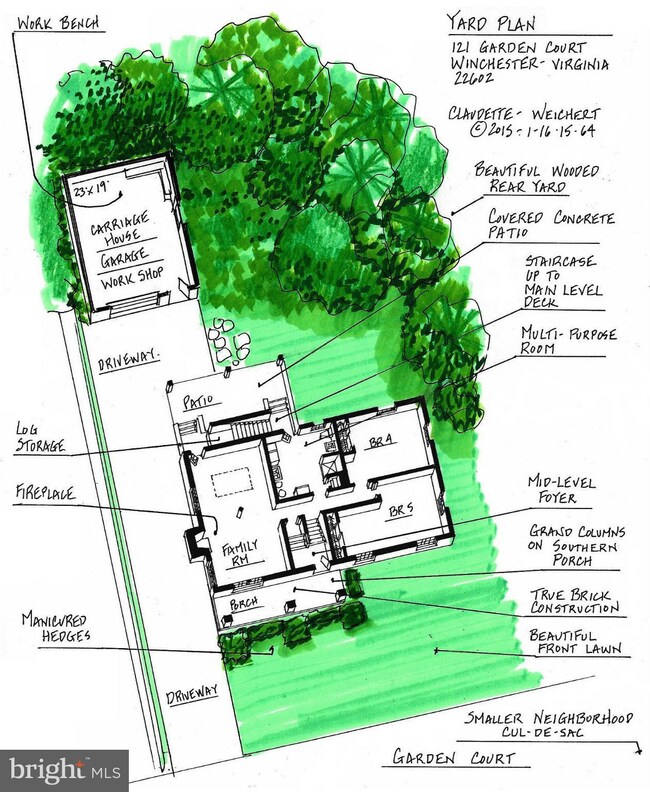 WORK BENCH
YARD PLAN
121 GARDEN COURT
WINCHESTER - VIRGINIA
22602
CLAUDETTE - WEICHERT
© 2015 - 1-16-15-64
BEAUTIFUL WOODED
REAR YARD
COVERED CONCRETE
PATIO
STAIRCASE
UP TO
MAIN LEVEL
DECK
MULTI-PURPOSE
ROOM
23' x 19'
CARRIAGE
HOUSE
GARAGE
WORK SHOP
DRIVEWAY.
PATIO
LOG
STORAGE
FIREPLACE
BR 4
BR 5
FAMILY
RM
PORCH
MID-LEVEL
FOYER
GRAND COLUMNS
ON SOUTHERN
PORCH
TRUE BRICK
CONSTRUCTION
BEAUTIFUL
FRONT LAWN
MANICURED
HEDGES
DRIVEWAY
SMALLER NEIGHBORHOOD
CUL-DE-SAC
GARDEN COURT
bright MLS